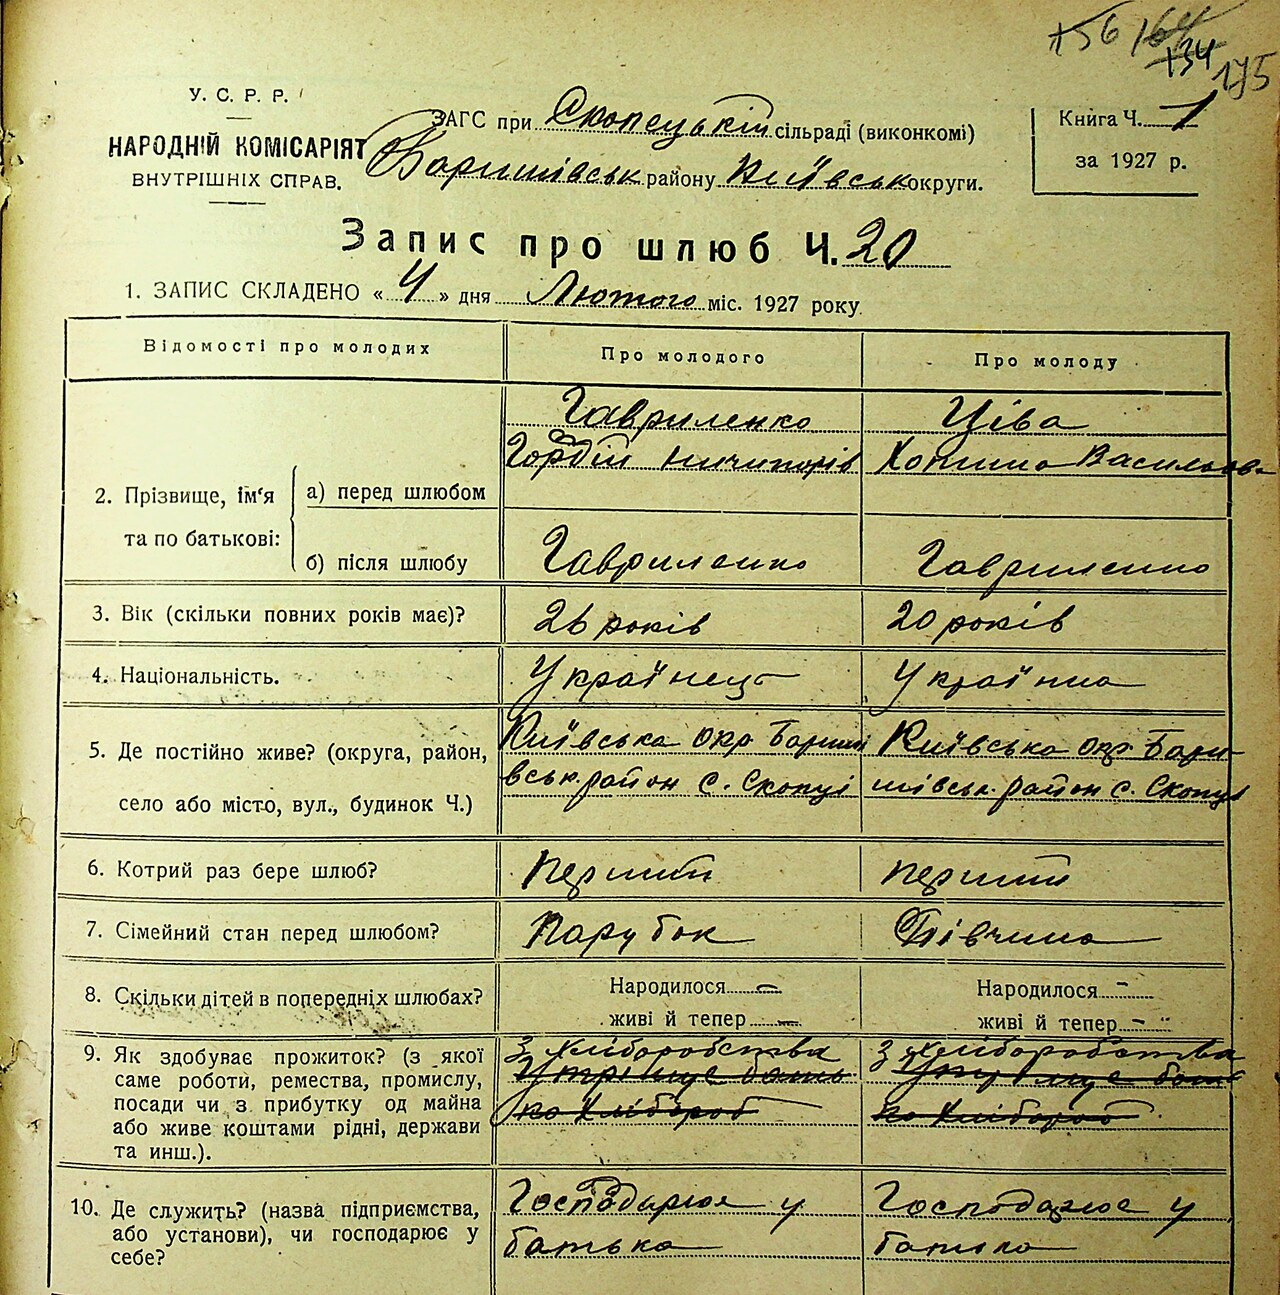 156 164
134
175
У. С. Р. Р.
НАРОДНІЙ КОМІСАРІЯТ
ВНУТРІШНІХ СПРАВ.
ЗАГС при Скопецькій сільраді (виконкомі)
Баришівськ району Київськ округи.
Книга Ч. 1
за 1927 р.
Запис про шлюб Ч. 20
1. ЗАПИС СКЛАДЕНО « 4 » дня Лютого міс. 1927 року
Відомості про молодих
Про молодого
Про молоду
2. Прізвище, ім'я та по батькові:
а) перед шлюбом
Гавриленко
Гордій Ничипорів
Ціва
Хотина Васильова
б) після шлюбу
Гавриленко
Гавриленко
3. Вік (скільки повних років має)?
26 років
20 років
4. Національність.
Українець
Українка
5. Де постійно живе? (округа, район,
село або місто, вул., будинок Ч.)
Київська окр Бариші
вськ. район с. Скопці
Київська окр. Бари
шівськ. район с. Скопці
6. Котрий раз бере шлюб?
перший
перший
7. Сімейний стан перед шлюбом?
Парубок
Дівчина
8. Скільки дітей в попередніх шлюбах?
Народилося —
живі й тепер —
Народилося -
живі й тепер -
9. Як здобуває прожиток? (з якої
саме роботи, ремества, промислу,
посади чи з прибутку од майна
або живе коштами рідні, держави
та инш.).
З хліборобства
Утримує бать
ко хлібороб
З хліборобства
Утримує бать
ко хлібороб
10. Де служить? (назва підприємства,
або установи), чи господарює у
себе?
Господарює у
батька
Господарює у
батька